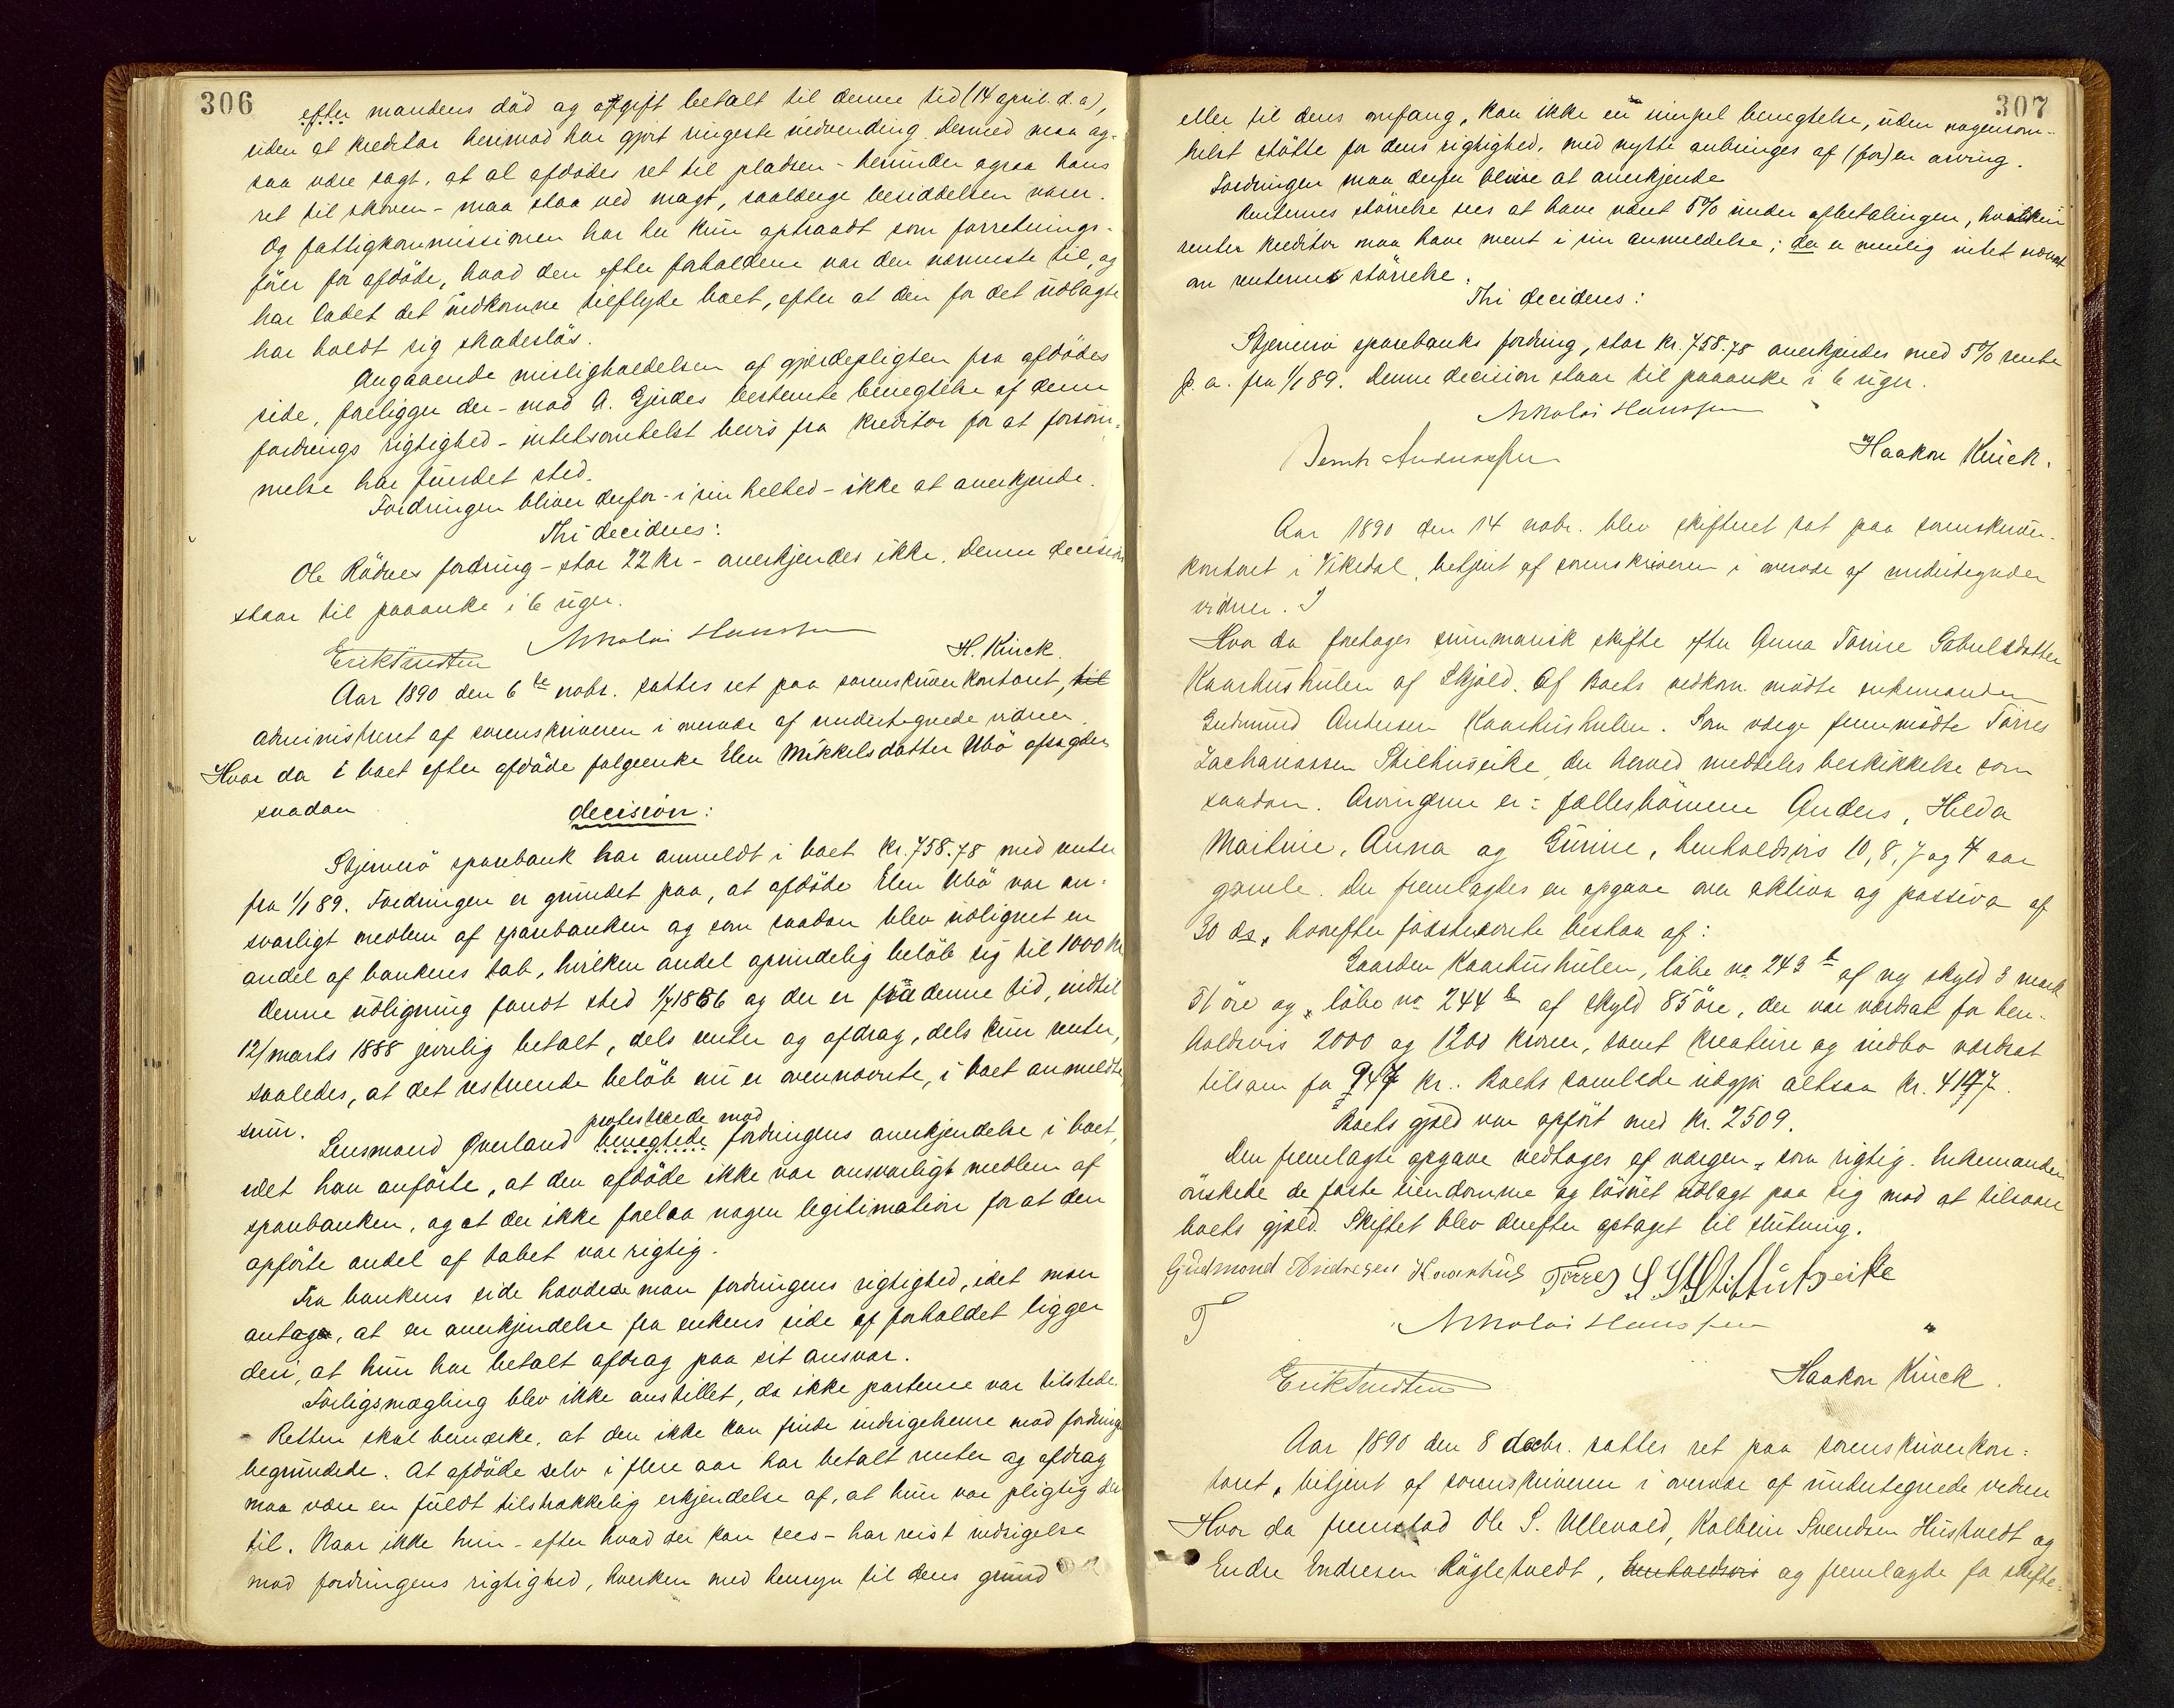 306
efter mandens död og afgift betalt til denne tid (14 april d. a),
uden at kreditor herimod har gjort ringeste indvending. Dermed maa og-
saa være sagt, at al afdødes ret til pladsen - herunder ogsaa hans
ret til skoven - maa staa ved magt, saalænge besiddelsen varer.
Og fattigkommissionen har her kun optraadt som forretnings-
förer for afdöde, hvad den efter forholdene var den nærmeste til, og
har ladet det indkomne tilflyde boet, efter at den for det udlagte
har holdt sig skadeslös.
Angaaende misligholdelsen af gjerdepligten fra afdödes
side, foreligger der - mod A. Gjerdes bestemte benegtelse af denne
fordrings rigtighed - intetsomhelst bevis fra kreditor for at forsöm-
melse har fundet sted.
Fordringen bliver derfor - i sin helhed - ikke at anerkjende.
Thi decideres:
Ole Rödnes fordring - stor 22 kr - anerkjendes ikke. Denne decision
staar til paaanke i 6 uger.
Nikolai Hanssen
Erik Knudsen H. Kinck.
Aar 1890 den 6te nobr. sattes ret paa sorenskriverkontoret, til
administreret af sorenskriveren i overvær af undertegnede vidner.
Hvor da i boet efter afdöde folgeenke Elen Mikkelsdatter Ubö afsagdes
saadan decision:
Skjernerö sparebank har anmeldt i boet kr. 758.78 med renter
fra 1/1 89. Fordringen er grundet paa, at afdöde Elen Ubö var an-
svarligt medlem af sparebanken og som saadan blev udlignet en
andel af bankens tab, hvilken andel oprindelig beløb sig til 1000 kr
Denne udligning fandt sted 1/7 1886 og der er fra denne tid, indtil
12/marts 1888 jevnlig betalt, dels renter og afdrag, dels kun renter,
saaledes, at det resterende beløb nu er ovennævnte, i boet anmeldte
sum.
protesterede mod
Lensmand Qverland benegtede fordringens anerkjendelse i boet,
idet han anförte, at den afdöde ikke var ansvarligt medlem af
sparebanken, og at der ikke forelaa nogen legitimation for at den
opförte andel af tabet var rigtig.
Fra bankens side hævdede man fordringens rigtighed, idet man
antager, at en anerkjendelse fra enkens side af forholdet ligger
deri, at hun har betalt afdrag paa sit ansvar.
Forligsmægling blev ikke anstillet, da ikke parterne var tilstede.
Retten skal bemærke, at den ikke kan finde indsigelserne mod fordringen
begrundede. At afdöde selv i flere aar har betalt renter og afdrag
maa være en fuldt tilstrækkelig erkjendelse af, at hun var pligtig der
til. Naar ikke hun - efter hvad der kan sees - har reist indsigelse
mod fordringens rigtighed, hverken med hensyn til dens grund
307
eller til dens omfang, kan ikke en simpel benegtelse, uden nogensom-
helst stötte for dens rigtighed, med nytte anbringes af (for) en arving.
Fordringen maa derfor blive at anerkjende
Renternes störrelse sees at have været 5% under afbetalingen, hvilken
renter kreditor maa have ment i sin anmeldelse; der er nemlig intet nævnt
om renternes störrelse.
Thi decideres:
Skjernerö sparebanks fordring, stor kr. 758.78 anerkjendes med 5% rente
p. a. fra 1/1 89. Denne decision staar til paaanke i 6 uger.
Nikolai Hanssen
Bernh Anderssen Haakon Kinck.
Aar 1890 den 14 nobr. blev skifteret sat paa sorenskriver-
kontoret i Vikedal, betjent af sorenskriveren i overvær af undertegnede
vidner.
Hvor da foretages summarisk skifte efter Anna Tomine Gabrielsdatter
Kaarhushulen af Skjold. Af Boets vedkom. mødte enkemanden
Gudmund Andersen Kaarhushulen. Som værge fremmødte Törres
Zachariassen Stulhuseike, der herved meddeles beskikkelse som
saadan. Arvingerne er: fællesbörnene Anders, Hilda
Martine, Anna og Gurine, henholdsvis 10, 8, 7 og 4 aar
gamle. Der fremlagdes en opgave over aktiva og passiva af
30 ds, hvorefter förstnævnte bestaar af:
Gaarden Kaarhushulen, löbe no 243 b af ny skyld 3 mark
51 öre og löbe no 244 b af skyld 85 öre, der var værdsat for hen-
holdsvis 2000 og 1200 kroner, samt kreature og indbo værdsat
tilsam. for 947 kr. Boets samlede udgjör altsaa kr. 4147.
Boets gjæld var opfört med kr. 2509.
Den fremlagte opgave vedtages af værgen som rigtig. Enkemanden
önskede de faste eiendomme og lösöret udlagt paa sig mod at tilsvare
boets gjæld. Skiftet blev derefter optaget til slutning.
Gudmond Andresen Kaarhus Törres S. Stulhuseike
T Nikolai Hanssen
Erik Knudsen Haakon Kinck.
Aar 1890 den 8 decbr. sattes ret paa sorenskriverkon-
toret, betjent af sorenskriveren i overvær af undertegnede vidner
Hvor da fremstod Ole S. Ullevold, Kolbein Svendsen Hustvedt og
Endre Endresen Röglehvedt, henholdsvis og fremlagde for skifte-